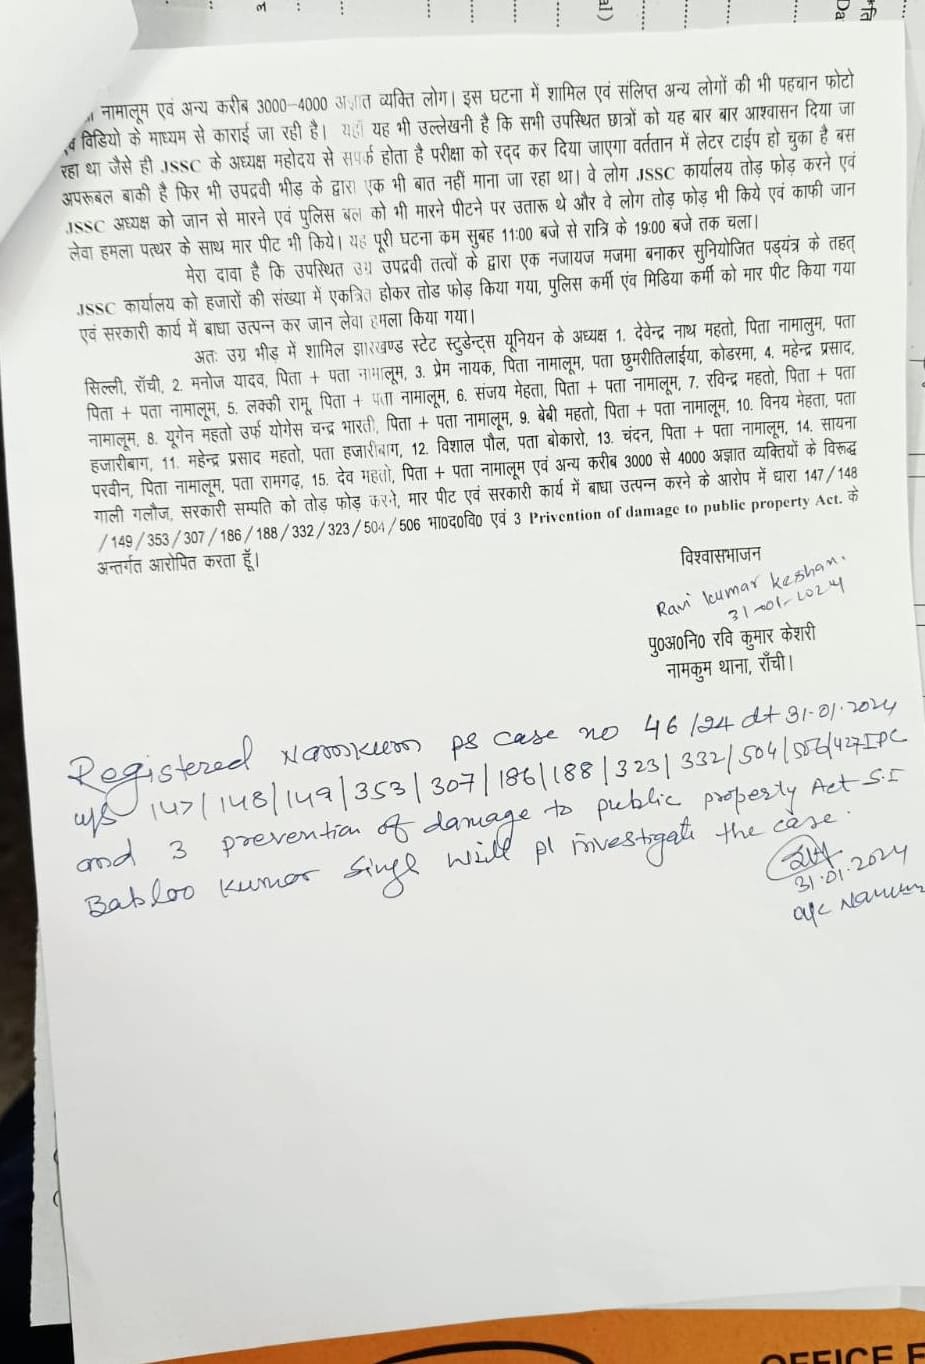 नामालूम एवं अन्य करीब 3000-4000 अज्ञात व्यक्ति लोग। इस घटना में शामिल एवं संलिप्त अन्य लोगों की भी पहचान फोटो
एवं विडियो के माध्यम से काराई जा रही है। यहाँ यह भी उल्लेखनी है कि सभी उपस्थित छात्रों को यह बार बार आश्वासन दिया जा
रहा था जैसे ही JSSC के अध्यक्ष महोदय से सपर्क होता है परीक्षा को रदद कर दिया जाएगा वर्ततान में लेटर टाईप हो चुका है बस
अपरूबल बाकी है फिर भी उपद्रवी भीड़ के द्वारा एक भी बात नहीं माना जा रहा था। वे लोग JSSC कार्यालय तोड़ फोड़ करने एवं
JSSC अध्यक्ष को जान से मारने एवं पुलिस बल को भी मारने पीटने पर उतारू थे और वे लोग तोड़ फोड़ भी किये एवं काफी जान
लेवा हमला पत्थर के साथ मार पीट भी किये। यह पूरी घटना कम सुबह 11:00 बजे से रात्रि के 19:00 बजे तक चला।
मेरा दावा है कि उपस्थित उग्र उपद्रवी तत्वों के द्वारा एक नजायज मजमा बनाकर सुनियोजित षड़यंत्र के तहत्
JSSC कार्यालय को हजारों की संख्या में एकत्रित होकर तोड फोड़ किया गया, पुलिस कर्मी एंव मिडिया कर्मी को मार पीट किया गया
एवं सरकारी कार्य में बाधा उत्पन्न कर जान लेवा हमला किया गया।
अतः उग्र भीड़ में शामिल झारखण्ड स्टेट स्टुडेन्ट्स यूनियन के अध्यक्ष 1. देवेन्द्र नाथ महतो, पिता नामालुम, पता
सिल्ली, रॉची, 2. मनोज यादव, पिता + पता नामालूम, 3. प्रेम नायक, पिता नामालूम, पता छुमरीतिलाईया, कोडरमा, 4. महेन्द्र प्रसाद,
पिता + पता नामालूम, 5. लक्की रामू, पिता + पता नामालूम, 6. संजय मेहता, पिता + पता नामालूम, 7. रविन्द्र महतो, पिता + पता
नामालूम, 8. यूगेन महतो उर्फ योगेस चन्द्र भारती, पिता + पता नामालूम, 9. बेबी महतो, पिता + पता नामालूम, 10. विनय मेहता, पता
हजारीबाग, 11. महेन्द्र प्रसाद महतो, पता हजारीबाग, 12. विशाल पौल, पता बोकारो, 13. चंदन, पिता + पता नामालूम, 14. सायना
परवीन, पिता नामालूम, पता रामगढ़, 15. देव महतो, पिता + पता नामालूम एवं अन्य करीब 3000 से 4000 अज्ञात व्यक्तियों के विरूद्ध
गाली गलौज, सरकारी सम्पति को तोड़ फोड़ करने, मार पीट एवं सरकारी कार्य में बाधा उत्पन्न करने के आरोप में धारा 147/148
/149/353/307/186/188/332/323/504/506 भा०द०वि० एवं 3 Privention of damage to public property Act. के
अन्तर्गत आरोपित करता हूँ।
विश्वासभाजन
Ravi kumar Keshari
31-01-2024
पु०अ०नि० रवि कुमार केशरी
नामकुम थाना, राँची।
Registered Namkum PS case no 46/24 dt 31.01.2024
u/s 147/148/149/353/307/186/188/323/332/504/506/427 IPC
and 3 prevention of damage to public property Act S.I
Babloo Kumar Singh will pl investigate the case.
31.01.2024
o/c Namkum
OFFICE F